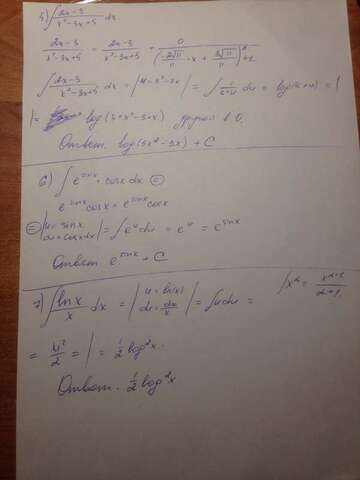 5) ∫ (2x-3)/(x²-3x+5) dx
(2x-3)/(x²-3x+5) = (2x-3)/(x²-3x+5) =
∫ (2x-3)/(x²-3x+5) dx = |u = x²-3x| = ∫ 1/(5+u) du = log(5+u) = |
|= log(5+x²-3x)
Ответ: log(5x²-3x)+C
6) ∫ e^sinx · cosx dx =
e^sinx cosx = e^sinx cosx
= |u = sinx du = cosx dx| = ∫ e^u du = e^u = e^sinx
Ответ e^sinx + C
7) ∫ lnx/x dx = |u = ln(x) du = dx/x| = ∫ u du = ∫x^α = x^(α+1)/(α+1)
= u²/2 = | = ½ log²x.
Ответ. ½ log²x